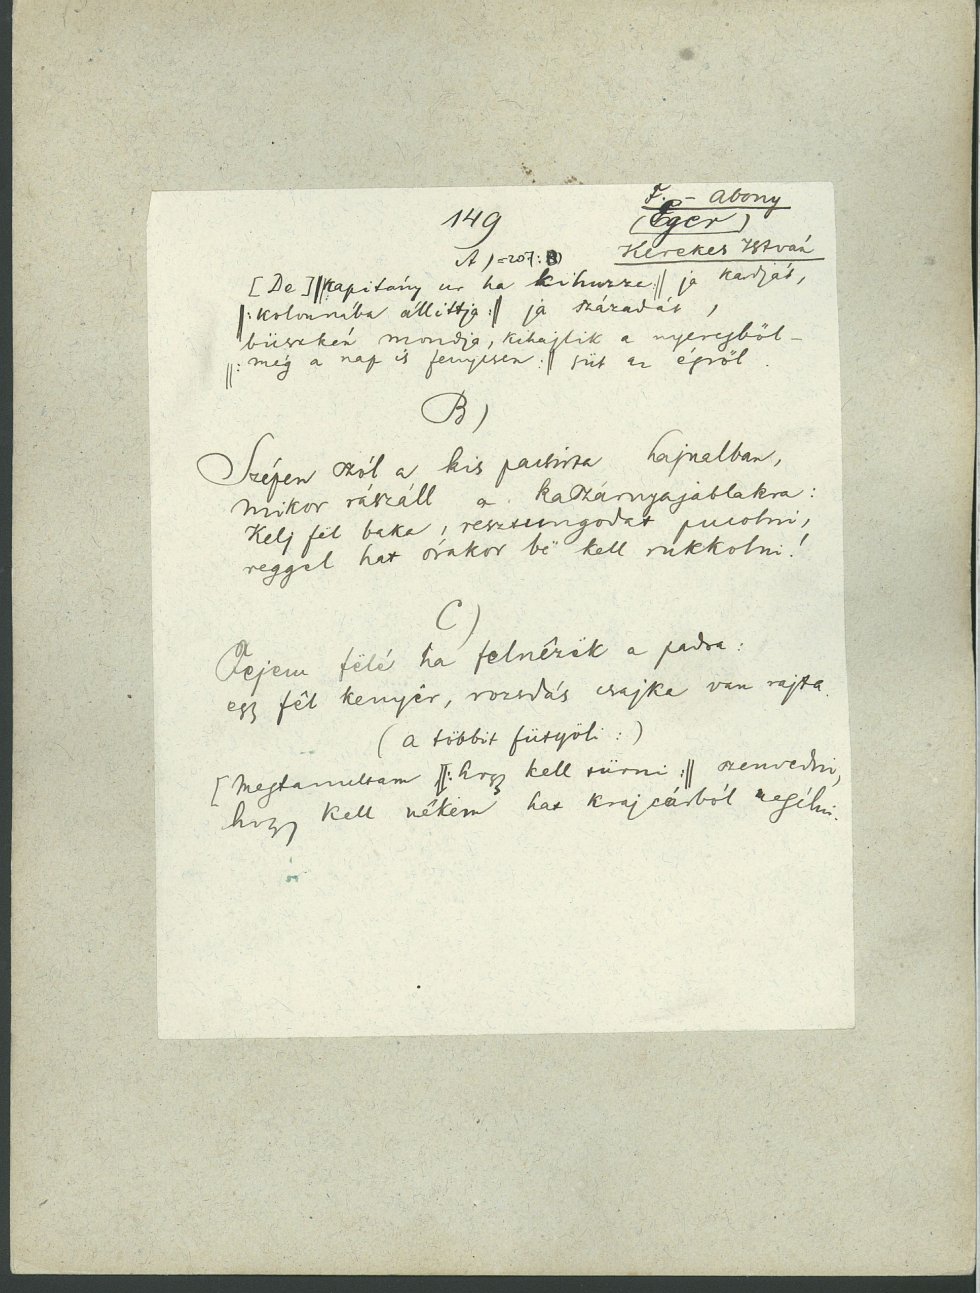 F. - Abony
149
(Eger)
Kerekes István
A) = 207: B)
[De] ||: kapitány ur ha kihuzza :|| ja kardját,
||: kolonnába állittja :|| ja századát,
büszkén mondja, kihajlik a nyeregböl –
||: még a nap is fenyesen :|| süt az égröl.
B)
Szépen szól a kis pacsirta hajnalban,
mikor rászáll a kaszárnyajablakra:
Kelj föl baka, resztungodat pucolni,
reggel hat órakor bë kell rukkolni!
C)
Fejem fölé ha felnézëk a padra:
egy fél kenyér, rozsdás csajka van rajta.
(a többit fütyöli:)
[Megtanultam ||: hogy kell türni :|| szenvedni,
hogy kell nékem hat krajcárból megélni.